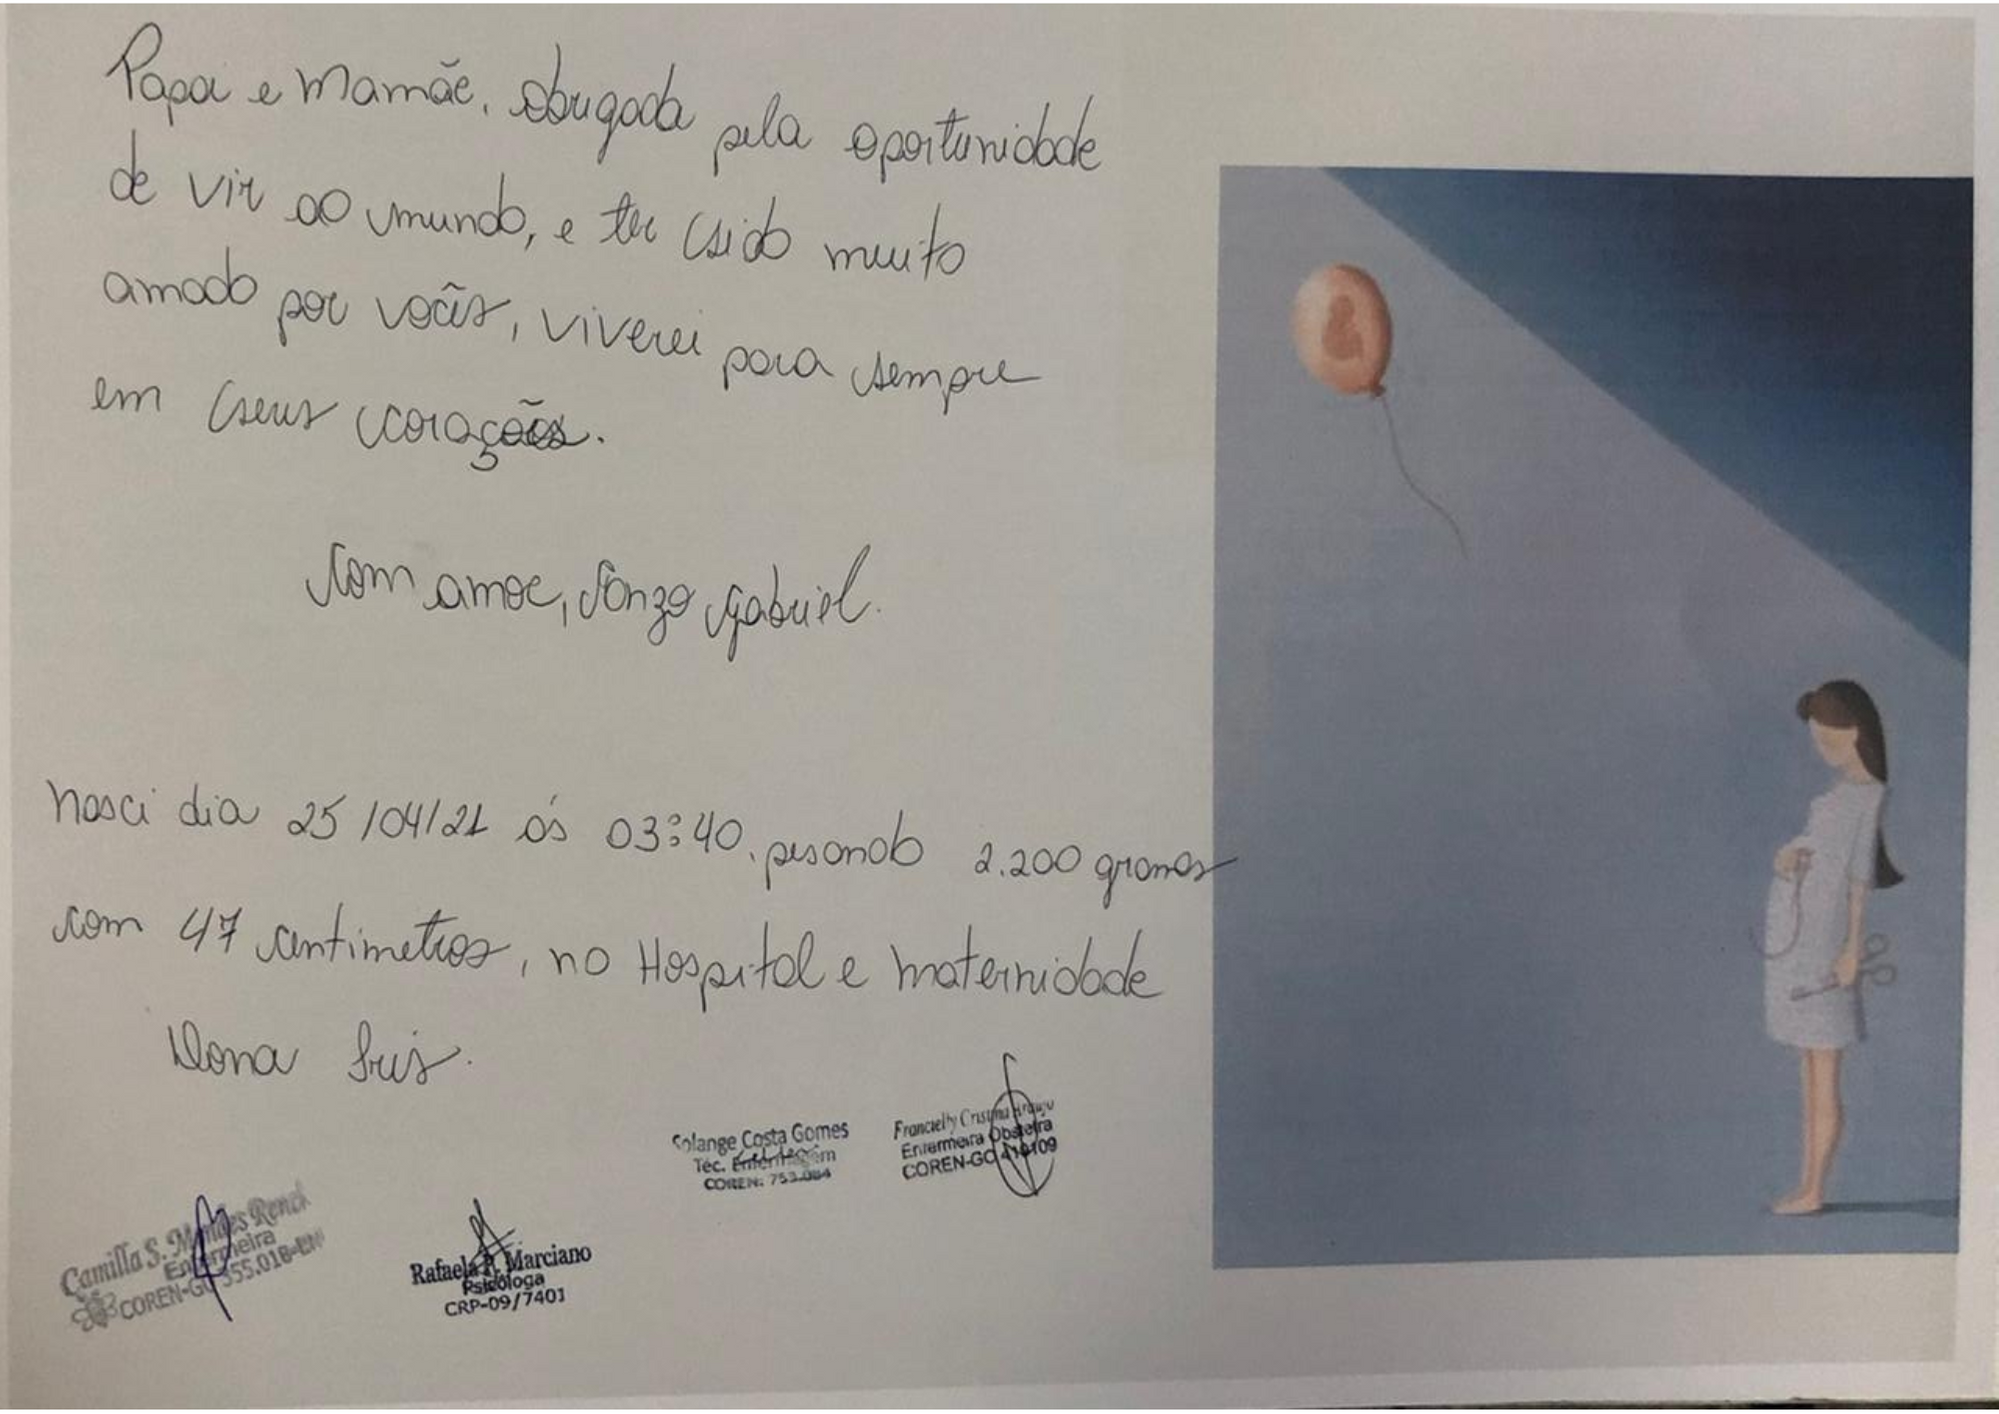 Papai e Mamãe, obrigada pela oportunidade
de vir ao mundo, e ter sido muito
amado por vocês, viverei para sempre
em seus corações.
Com amor, Enzo Gabriel.
Nasci dia 25/04/21 ás 03:40, pesando 2.200 gramas
com 47 centimetros, no Hospital e maternidade
Dona Iris.
Solange Costa Gomes
Téc. Enfermagem
COREN: 753.084
Francielly Cristina Araujo
Enfermeira Obstetra
COREN-GO
Camilla S. Mendes
Enfermeira
COREN-GO 355.016-ENF
Rafaela P. Marciano
Psicóloga
CRP-09/7401